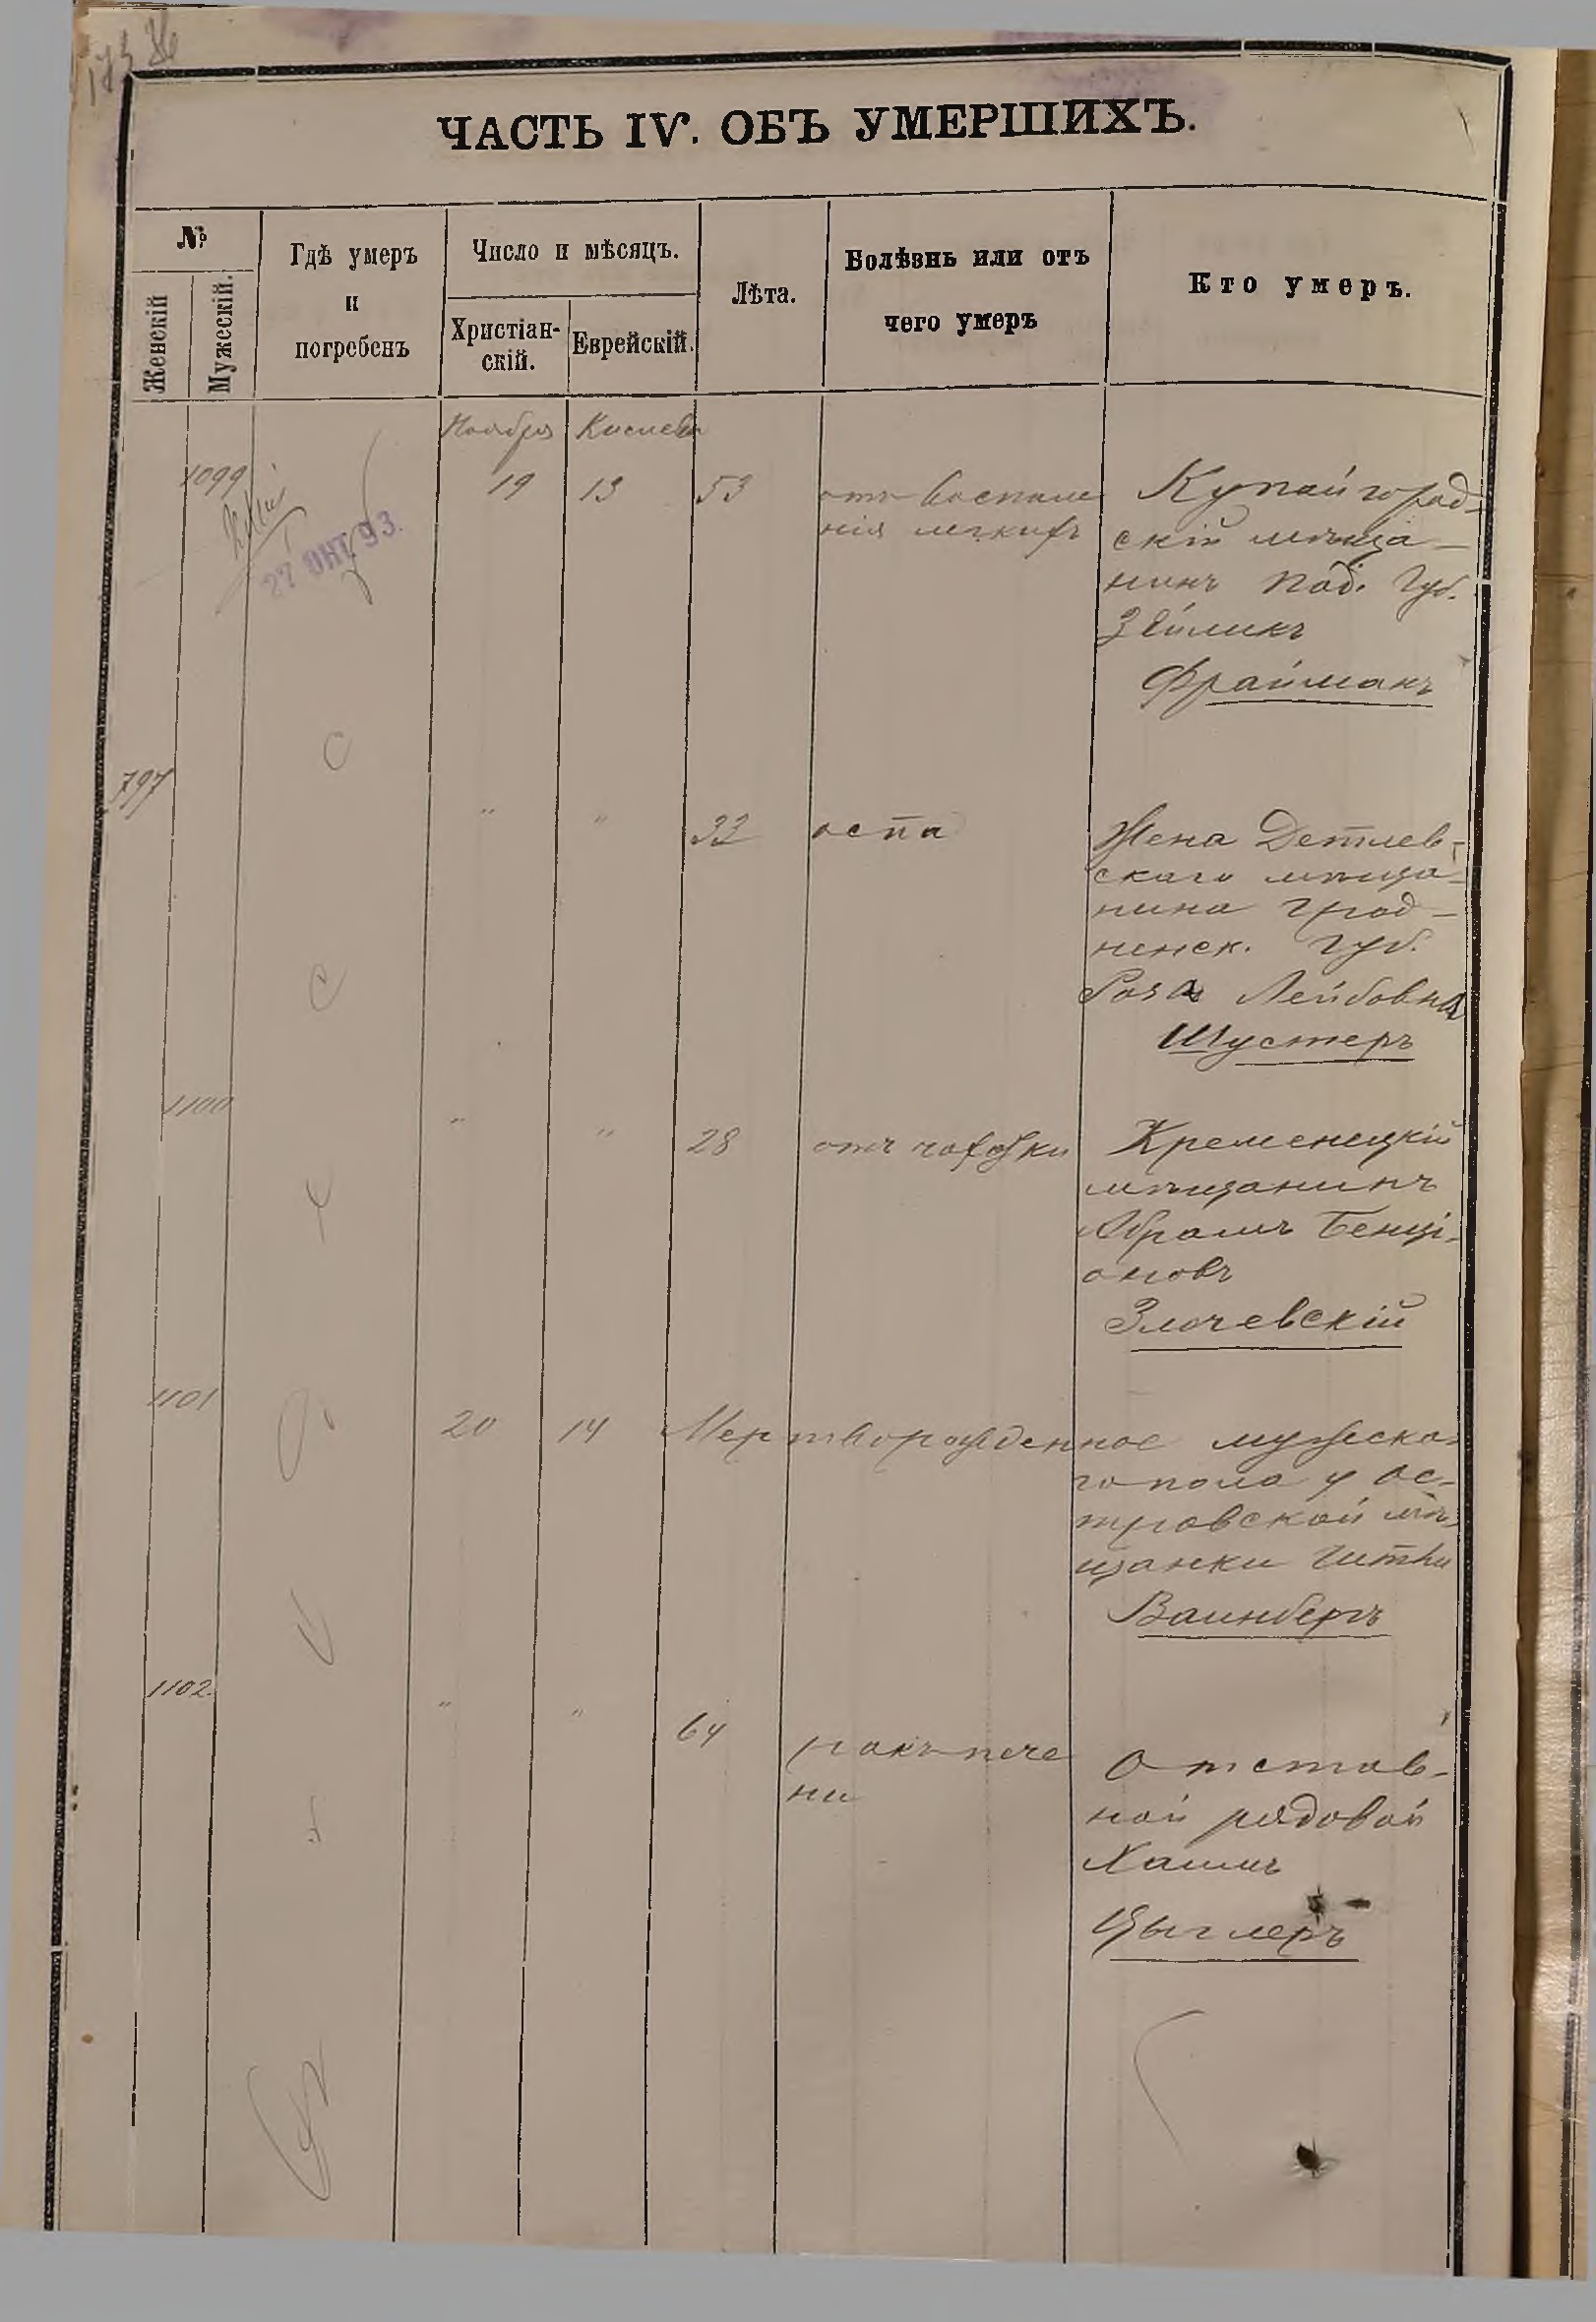 ЧАСТЬ IV. ОБЪ УМЕРШИХЪ.
№
Женскій
Мужескій.
Гдѣ умеръ
и
погребенъ
Число и мѣсяцъ.
Христіан-
скій.
Еврейскій.
Лѣта.
Болѣзнь или отъ
чего умеръ
Кто умеръ.
Ноября Кислева
1099 19 13 53 отъ воспале Купайгород-
нія легкихъ скій мѣща-
нинъ Под. Губ.
Зейликъ
Фрайманъ
27 ОКТ. 93.
797 " " 33 оспа Жена
скаго мѣща-
нина Грод-
ненск. Губ.
Роза Лейбовна
Шустеръ
1100 " " 28 отъ чахотки Кременецкій
мѣщанинъ
Абрамъ Бенці-
оновъ
Злочевскій
1101 20 14 Мертворожденное мужеска-
го пола у Ос-
тровской мѣ-
щанки
Ваинбергъ
1102. " " 64 ракъ пече Отстав-
ни ной рядовой
Хаимъ
Цыглеръ